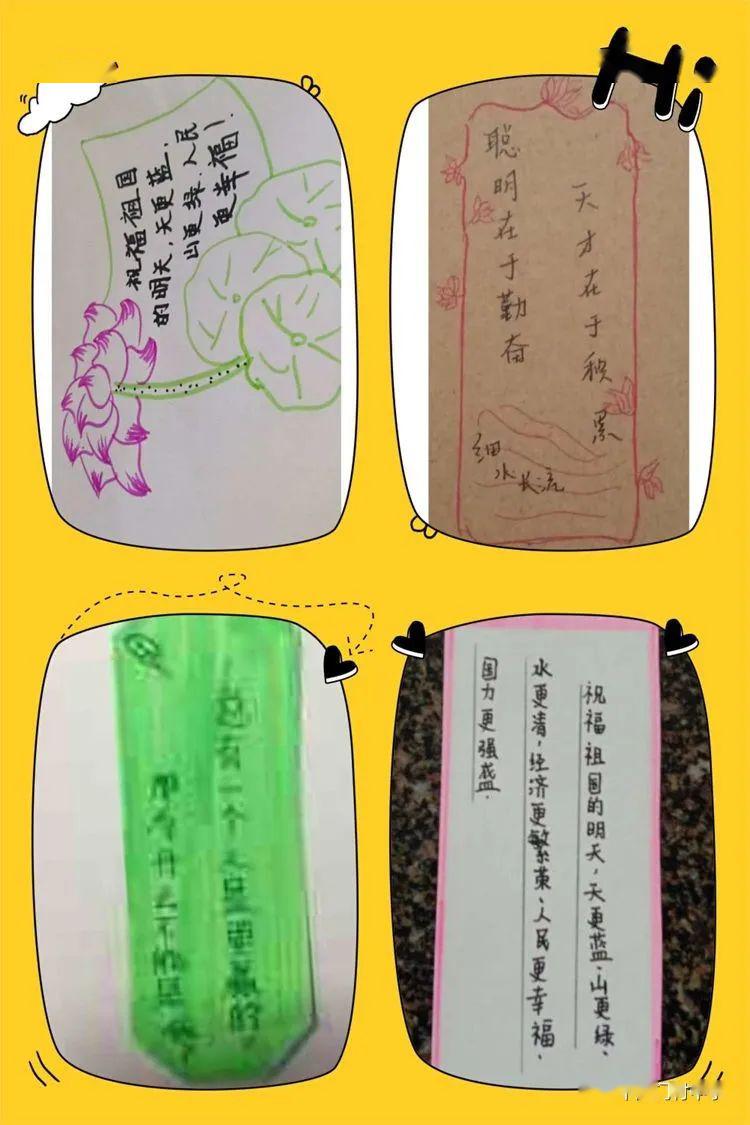 Hi
祝福祖国
的明天，天更蓝、
山更绿、人民
更幸福！
聪明在于勤奋
天才在于积累
细水长流
祝福祖国的明天，天更蓝、山更绿、
水更清，经济更繁荣、人民更幸福、
国力更强盛.